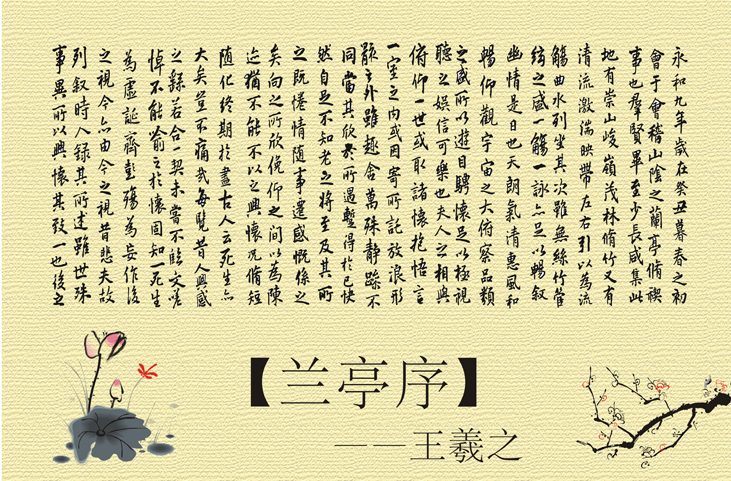 永和九年歲在癸丑暮春之初
會于會稽山陰之蘭亭脩禊
事也羣賢畢至少長咸集此
地有崇山峻嶺茂林脩竹又有
清流激湍映帶左右引以為流
觴曲水列坐其次雖無絲竹管
絃之盛一觴一詠亦足以暢叙
幽情是日也天朗氣清惠風和
暢仰觀宇宙之大俯察品類
之盛所以遊目騁懷足以極視
聽之娛信可樂也夫人之相與
俯仰一世或取諸懷抱悟言
一室之内或因寄所託放浪形
骸之外雖趣舍萬殊靜躁不
同當其欣於所遇蹔得於己快
然自足不知老之將至及其所
之既惓情隨事遷感慨係之
矣向之所欣俛仰之間以為陳
迹猶不能不以之興懷況脩短
隨化終期於盡古人云死生亦
大矣豈不痛哉每覽昔人興感
之若合一契未嘗不臨文嗟
悼不能喻之於懷固知一死生
為虛誕齊彭殤為妄作後
之視今亦由今之視昔悲夫故
列叙時人録其所述雖世殊
事異所以興懷其致一也後之
【兰亭序】
——王羲之